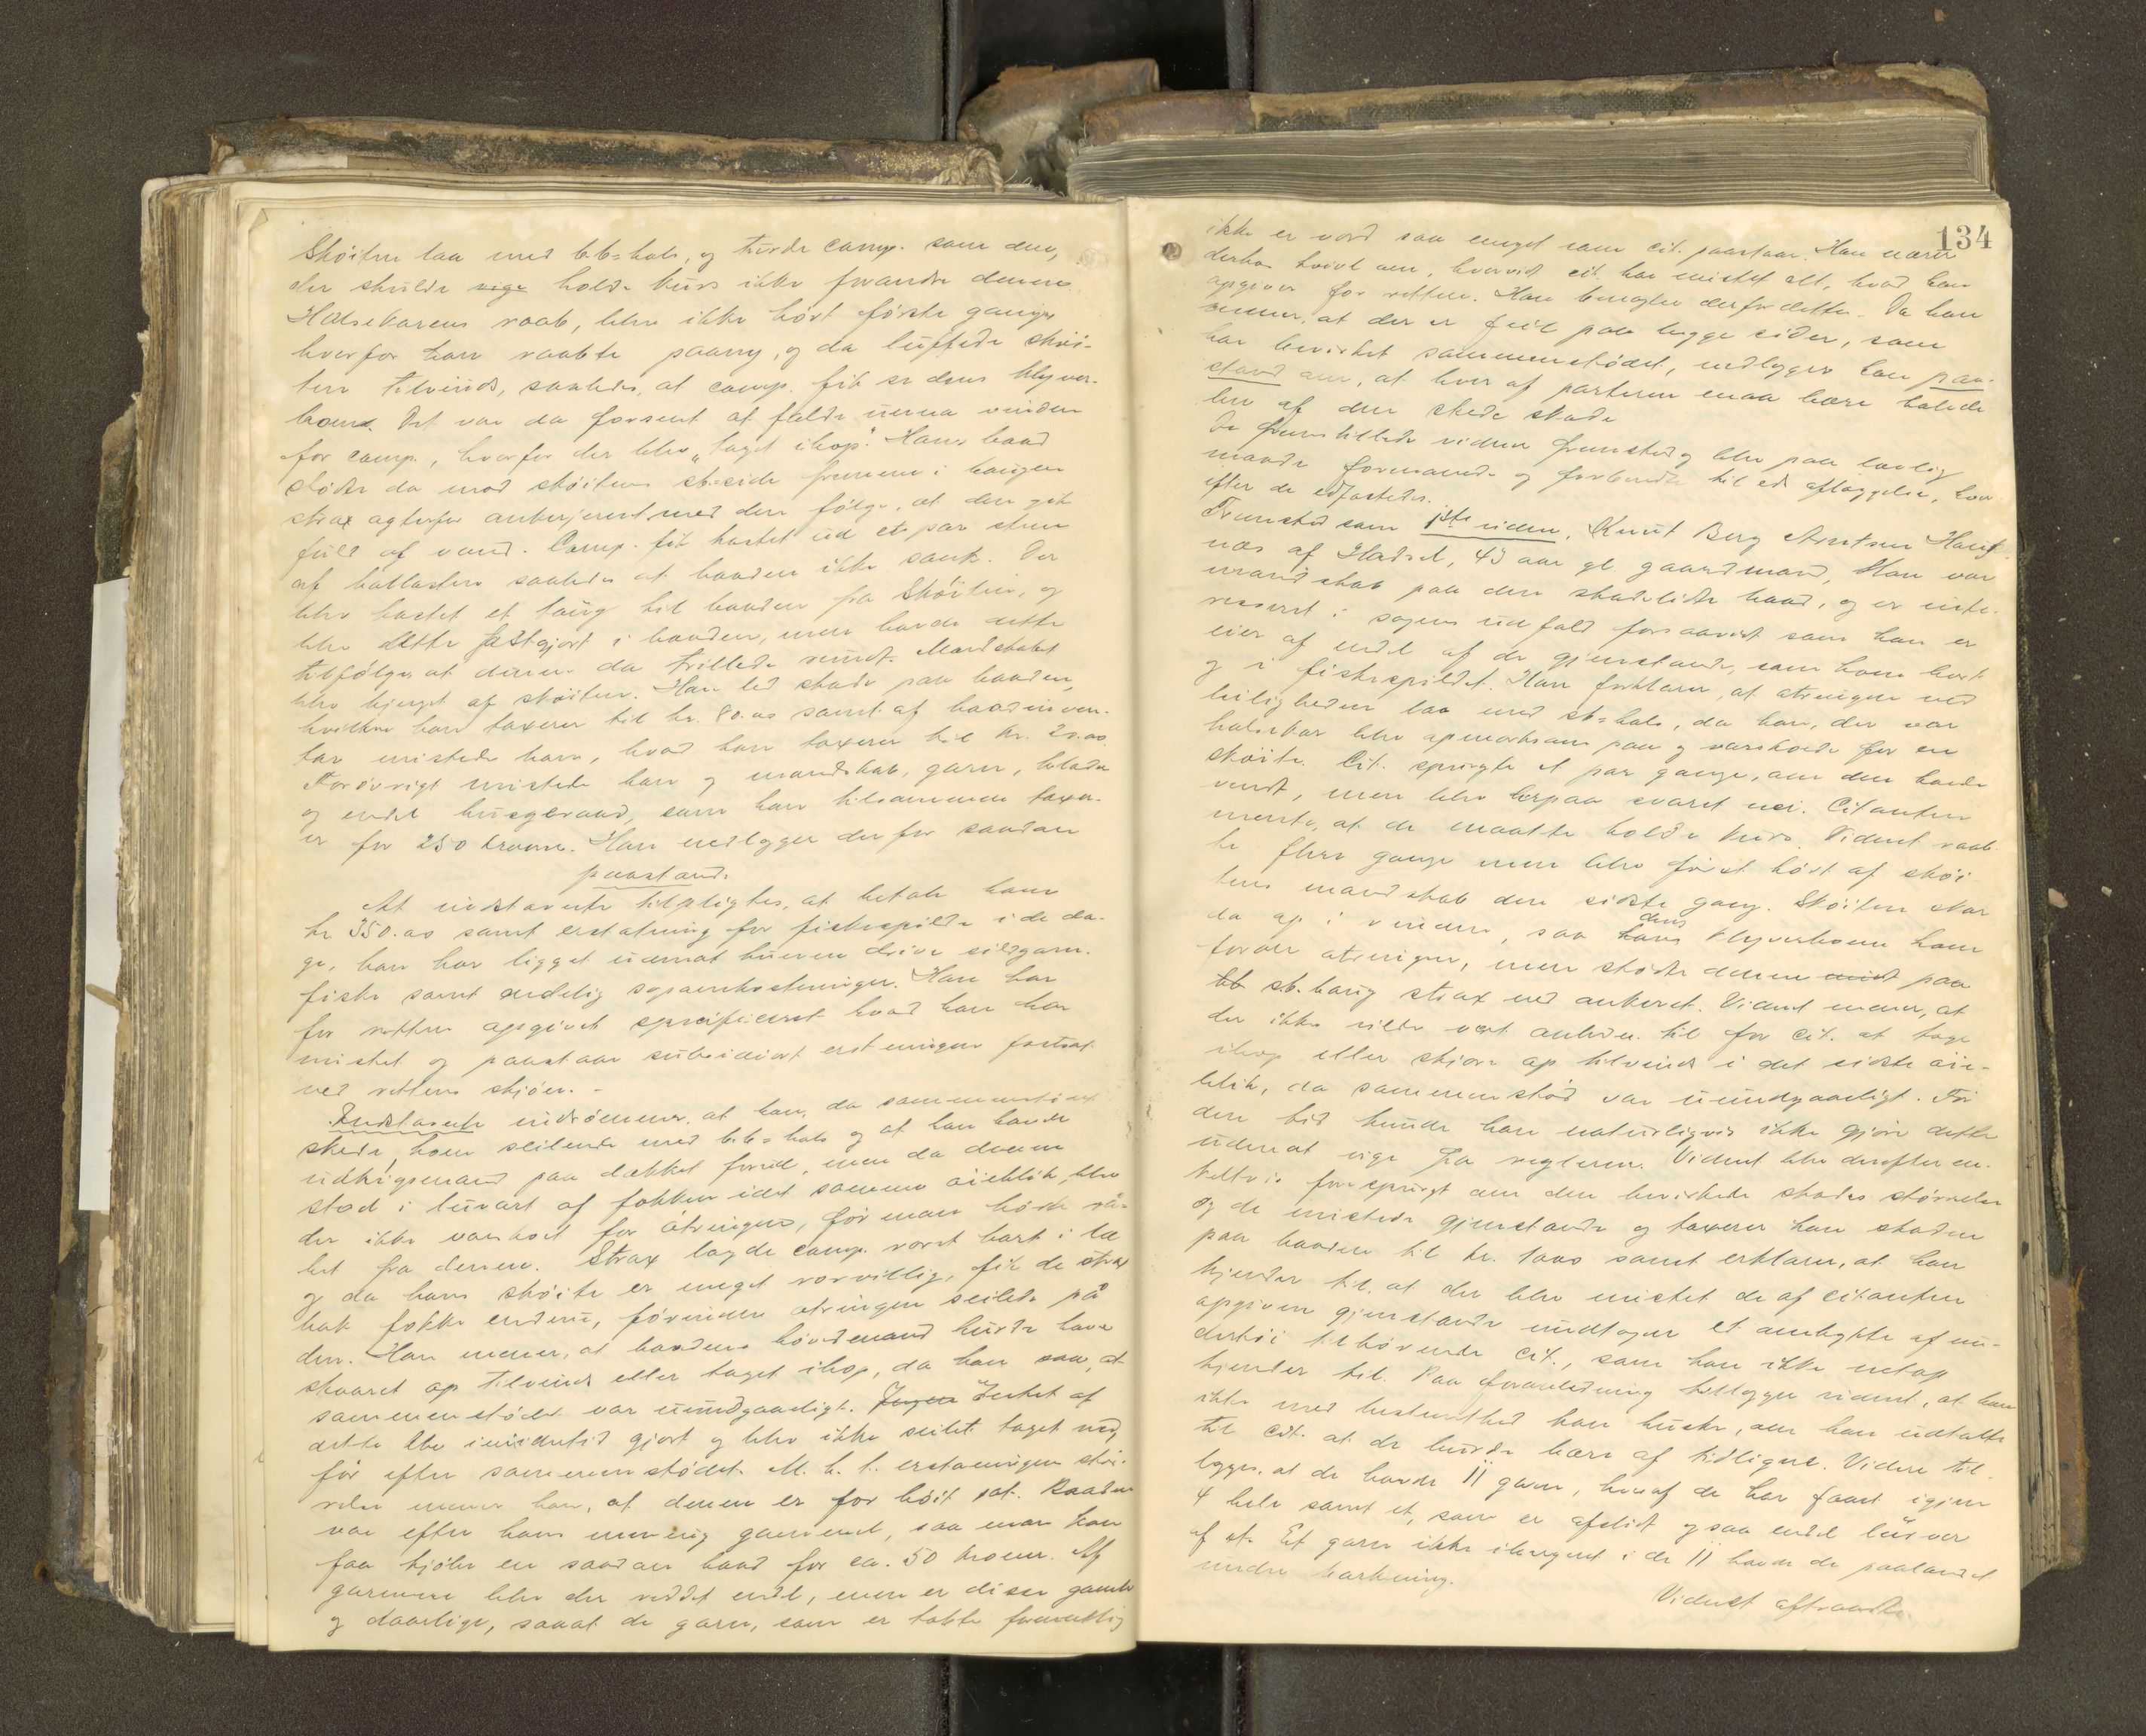 Skøiten laa med b.b=hals, og turde comp. som den,
der skulde vige holde kurs ikke forandre denne.
Halsekarens raab, blev ikke hørt første gang,
hvorfor han raabte paany, og da luffede skøi-
ten tilvinds, saaledes, at comp. fik se dens klyver-
bom. Det var da forsent at falde unna vinden
for comp., hvorfor der blev "taget ihop". Hans baad
stødte da mod skøitens sb=side fremme i baugen
strax agtenfor ankerjernet med den følge, at den gik
full af vand. Comp. fik kastet ud et par sten
af ballasten saaledes at baaden ikke sank. Der
blev kastet et taug til baaden fra Skøiten, og
blev dette fastgjort i baaden, men havde dette
tilfølge, at denne da trillede rundt. Mandskabet
blev bjerget af skøiten. Han led skade paa baaden,
hvilken han taxerer til kr. 80.00 samt af baadinven-
tar mistede han, hvad han taxerer til kr. 20.00
Forøvrigt mistede han og mandskab, garn, klæder
og endel husgeraad, som han tilsammen taxer-
er for 250 kroner. Han nedlægger derfor saadan
paastand.
At indstævnte tilpligtes, at betale ham
kr. 350.00 samt erstatning for fiskespilde i de da-
ge, han har ligget uden at kunne drive sildgarn-
fiske samt endelig sagsomkostninger. Han har
for retten opgivet specificeret hvad han har
mistet og paastaar subsidiært erstatningen fastsat
ved rettens skjøn. -
Indstævnte indrømmer, at han, da sammenstødet
skede, kom seilende med b.b=hals og at han havde
udkigsmand paa dækket forud, men da denne
stod i luvart af fokken idet samme øieblik, blev
der ikke varskoet for åtringen, før man hørte rå-
bet fra denne. Strax lagde comp. roret hart i læ
og da hans skøite er meget rorvillig, fik de strax
bak fokke endnu, førinden åtringen seilede på
den. Han mener, at baadens høvedsmand burde have
skaaret op tilvinds eller taget ihop, da han saa, at
sammenstødet var uundgaaeligt. Ingen Intet af
dette blev imidlertid gjort og blev ikke seilet taget ned,
før efter sammenstødet. M. h. t. erstatningens stør-
relse mener han, at denne er for høit sat. Baaden
var efter hans mening gammel, saa man kan
faa kjøbe en saadan baad for ca. 50 kroner. Af
garnene blev der reddet endel, men er disse gamle
og daarlige, saaat de garn, som er tabte fremdeles
134
ikke er værd saa meget som cit. paastaar. Han nærer
derhos tvivl om, hvorvidt cit. har mistet alt, hvad han
opgiver for retten. Han benægter derfor dette. Da han
mener, at der er feil paa begge sider, som
har bevirket sammenstødet, nedlægger han paa-
stand om, at hver af parterne maa bære halvde-
len af den skede skade
De fremstillede vidner fremstod og blev paa lovlig
maade formanede og forberedte til eds aflæggelse, hvor-
efter de edfæstedes.
Fremstod som 1ste vidne, Knut Berg Arntsen Haug-
næs af Hadsel, 43 aar gl. gaardmand, Han var
mandskab paa den skadelidte baad, og er inte-
resseret i sagens udfald forsaavidt som han er
eier af endel af de gjenstande, som kom bort
og i fiskespildet. Han forklarer, at åtringen ved
leiligheden laa med sb=hals, da han, der var
halsekar blev opmerksom paa og varskoede for en
skøite. Cit. spurgte et par gange, om den havde
vendt, men blev herpaa svaret nei. Citanten
mente, at de maatte holde kurs. Vidnet raab-
te flere gange men blev først hørt af skøi-
tens mandskab den sidste gang. Skøiten skar
da op i vinden, saa hans dens klyverbom kom
forover åtringen, men stødte denne mod paa
bb sb. baug strax ved ankeret. Vidnet mener, at
der ikke vilde været anledn. til for cit. at tage
ihop eller skjære op tilvinds i det sidste øie-
blik, da sammenstød var uundgaaeligt. Før
den tid kunde han naturligvis ikke gjøre dette
uden at vige fra reglerne. Vidnet blev derefter en-
keltvis forespurgt om den bevirkede skades størrelse
og de mistede gjenstande og taxerer han skaden
paa baaden til kr. 10000 samt erklærer, at han
kjender til, at der blev mistet de af citanten
opgivne gjenstande undtagen et ombytte af un-
dertøi tilhørende cit., som han ikke netop
kjender til. Paa foranledning tillægger vidnet, at han
ikke med bestemthed kan huske, om han udtalte
til cit. at de burde bære af tidligere. Videre til-
lægges, at de havde 11 garn, hvoraf de har faaet igjen
4 hele samt et, som er afslidt og saa endel liser
af et. Et garn ikke iberegnet i de 11 havde de paalandet
under barkning.
Vidnet aftraadte.